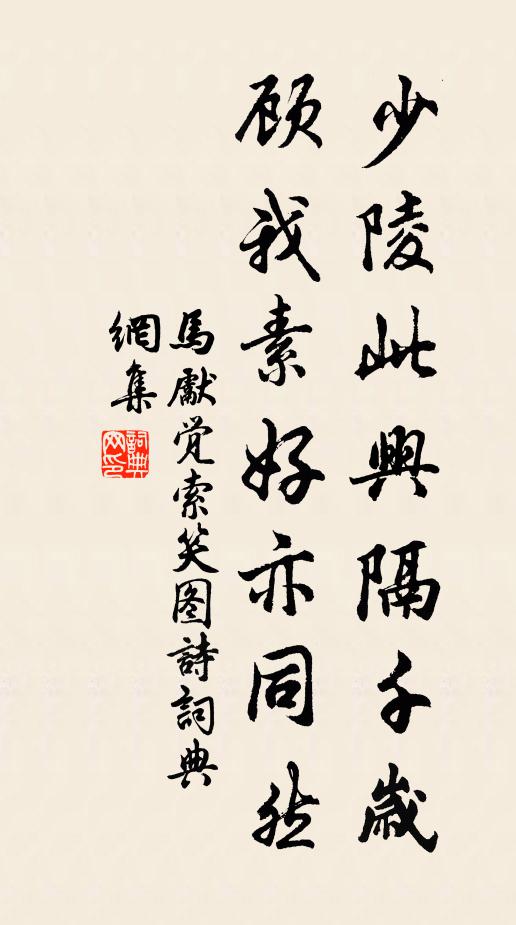 少陵此興隔千歲
顾我素好亦同然
馬獻觉索笑图詩詞典
網集
詞典
网印